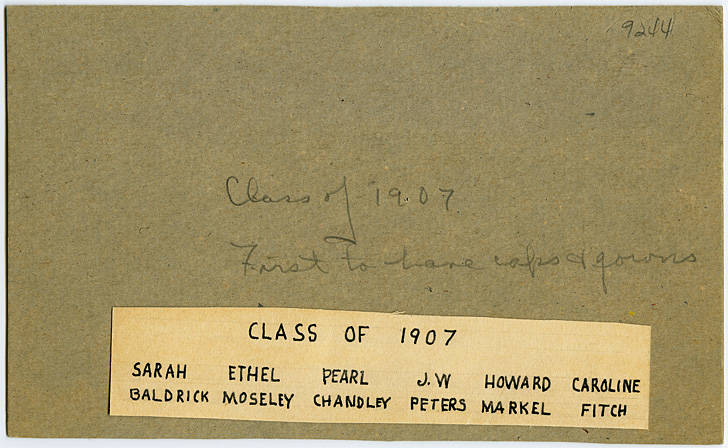 9244
Class of 1907
First to have caps & gowns
CLASS OF 1907
SARAH ETHEL PEARL J.W HOWARD CAROLINE
BALDRICK MOSELEY CHANDLEY PETERS MARKEL FITCH